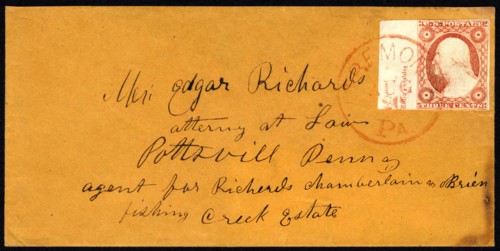 REMO
PA
THREE CENTS
Mr. Edgar Richards
attorney at Law
Pottsvill Penna
agent for Richerds chamberlain & Brién
fishing Creek Estate